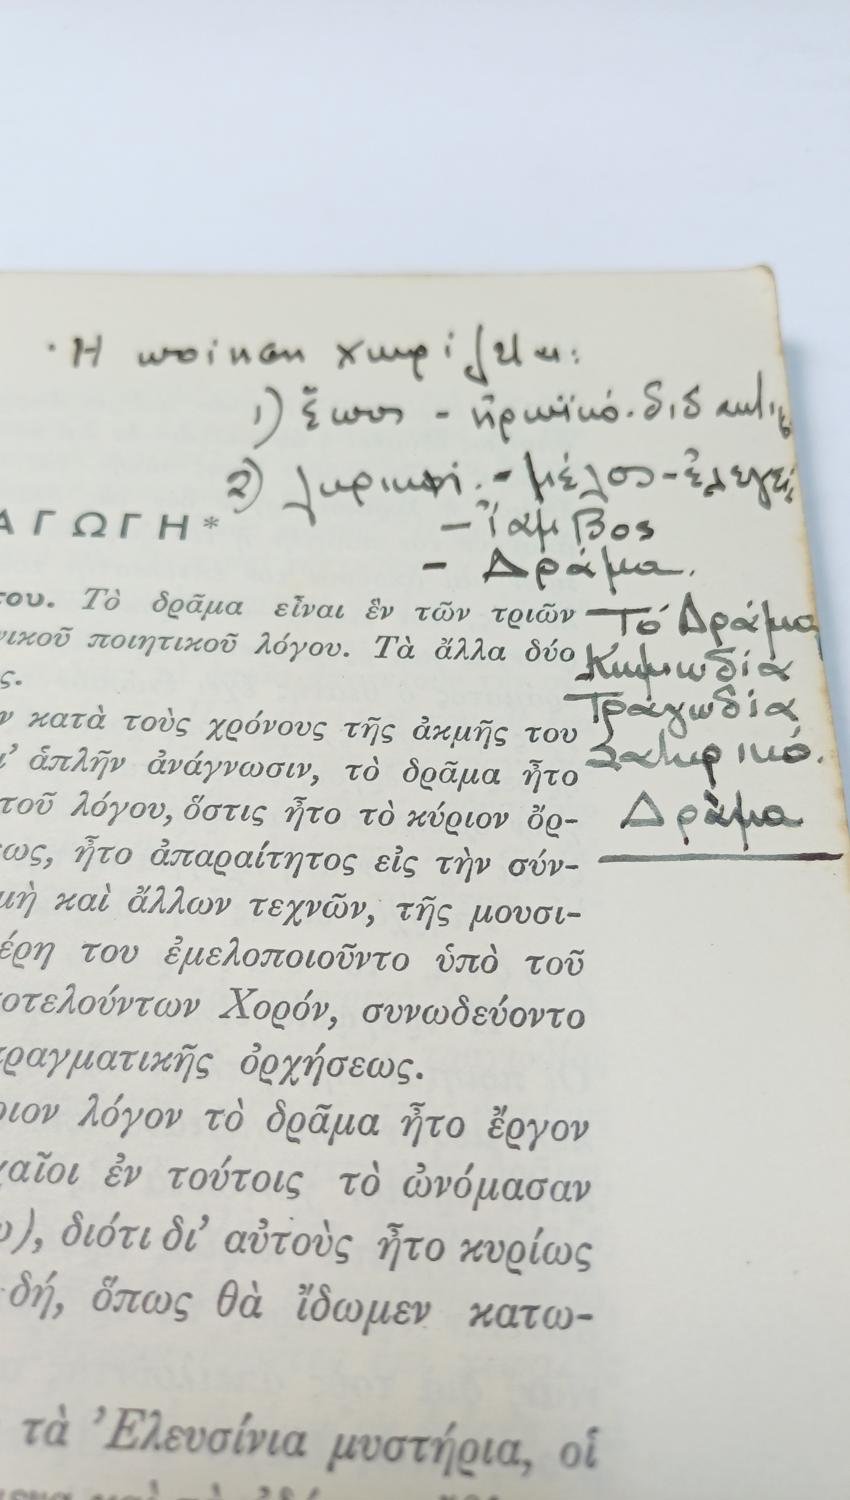 Ἡ ποίηση χωρίζεται:
1) ἔπος - ἡρωϊκό. διδακτικ
2) λυρική. - μέλος - ἐλεγεί
ΑΓΩΓΗ*
- Ἴαμβος
- Δράμα.
του. Τὸ δρᾶμα εἶναι ἓν τῶν τριῶν
νικοῦ ποιητικοῦ λόγου. Τὰ ἄλλα δύο
ς.
ν κατὰ τοὺς χρόνους τῆς ἀκμῆς του
ι’ ἁπλῆν ἀνάγνωσιν, τὸ δρᾶμα ἦτο
τοῦ λόγου, ὅστις ἦτο τὸ κύριον ὄρ-
εως, ἦτο ἀπαραίτητος εἰς τὴν σύν-
μὴ καὶ ἄλλων τεχνῶν, τῆς μουσι-
έρη του ἐμελοποιοῦντο ὑπὸ τοῦ
οτελούντων Χορόν, συνωδεύοντο
ραγματικῆς ὀρχήσεως.
ριον λόγον τὸ δρᾶμα ἦτο ἔργον
χαῖοι ἐν τούτοις τὸ ὠνόμασαν
υ), διότι δι’ αὐτοὺς ἦτο κυρίως
δή, ὅπως θὰ ἴδωμεν κατω-
τὰ Ἐλευσίνια μυστήρια, οἱ
Τό Δράμα
Κωμωδία
Τραγωδία
Σατυρικό.
Δράμα